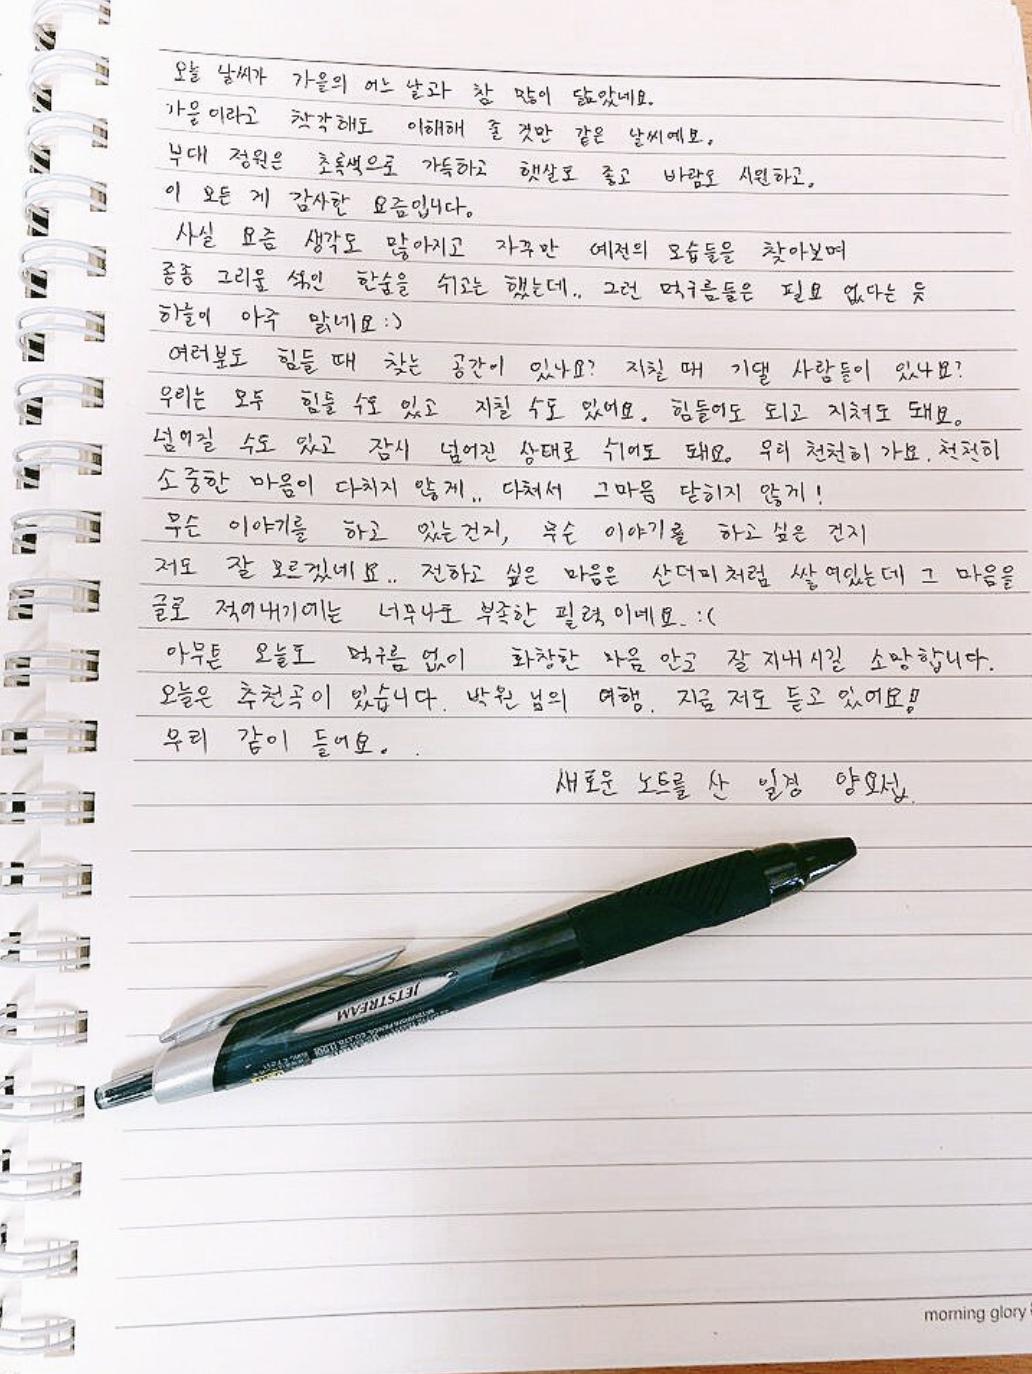 오늘 날씨가 가을의 어느 날과 참 많이 닮았네요.
가을이라고 착각해도 이해해 줄 것만 같은 날씨예요.
부대 정원은 초록색으로 가득하고 햇살도 좋고 바람도 시원하고.
이 모든 게 감사한 요즘입니다.
사실 요즘 생각도 많아지고 자꾸만 예전의 모습들을 찾아보며
종종 그리움 섞인 한숨을 쉬고는 했는데.. 그런 먹구름들은 필요 없다는 듯
하늘이 아주 맑네요 :)
여러분도 힘들 때 찾는 공간이 있나요? 지칠 때 기댈 사람들이 있나요?
우리는 모두 힘들 수도 있고 지칠 수도 있어요. 힘들어도 되고 지쳐도 돼요.
넘어질 수도 있고 잠시 넘어진 상태로 쉬어도 돼요. 우리 천천히 가요. 천천히
소중한 마음이 다치지 않게.. 다쳐서 그마음 닫히지 않게!
무슨 이야기를 하고 있는건지, 무슨 이야기를 하고싶은 건지
저도 잘 모르겠네요.. 전하고 싶은 마음은 산더미처럼 쌓여있는데 그 마음을
글로 적어내기에는 너무나도 부족한 필력이네요. :(
아무튼 오늘도 먹구름 없이 화창한 마음 안고 잘 지내시길 소망합니다.
오늘은 추천곡이 있습니다. 박원 님의 여행. 지금 저도 듣고 있어요!!
우리 같이 들어요.
새로운 노트를 산 일경 양요섭.
JETSTREAM
morning glory